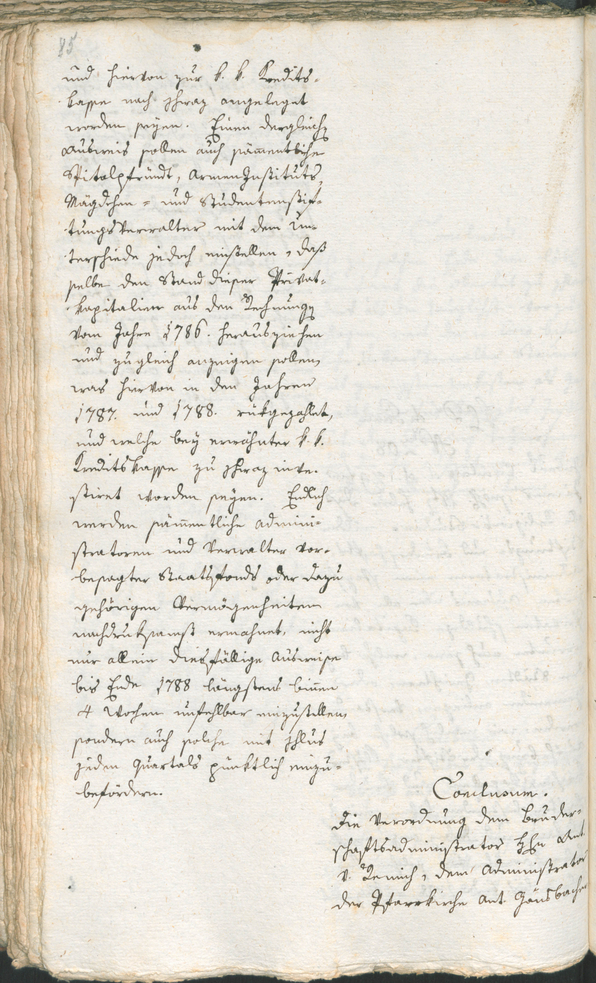 85
und hievon zur k. k. Kredits-
kasse nach Graz angeleget
worden seyen. Einen dergleichen
Ausweis sollen auch sämentliche
Spitalpfründt, Armeninstituts,
Mägdchen- und Studentenstif-
tungsverwalter mit dem Un-
terschiede jedoch einstellen, daß
selbe den Stand dieser Privat-
kapitalien aus den Rechnungen
vom Jahre 1786. herausziehen
und zugleich anzeigen sollen,
was hievon in den Jahren
1787. und 1788. rükgezahlet,
und welche bey erwähnter k. k.
Kreditskasse zu Graz inve-
stiret worden seyen. Endlich
werden sämentliche Admini-
stratoren und Verwalter vor-
besagter Staatsfonds oder dazu
gehörigen Vermögenheiten
nachdruksamst ermahnet, nicht
nur allein diesfällige Ausweise
bis Ende 1788 längstens binnen
4 Wochen unfehlbar einzustellen,
sondern auch solche mit Schlus
jeden Quartals pünktlich einzu-
befördern.
Conclusum.
Die Verordnung dem Bruder-
schaftsadministrator Hn
v. Remich, dem Administrator
der Pfarrkirche Ant